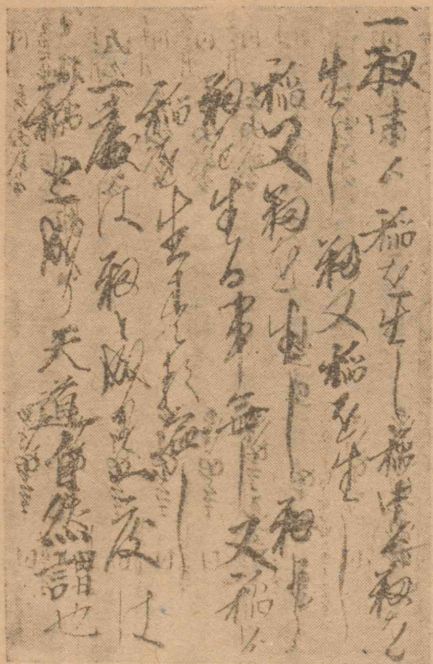 一籾 稲を生し稲 籾を
生し 籾又稲を生し
稲又籾を生し 籾より
籾を生る事無し 又稲より
稲を生る事無し
一度は籾と成り一度は
稲と成り 天道自然謂也